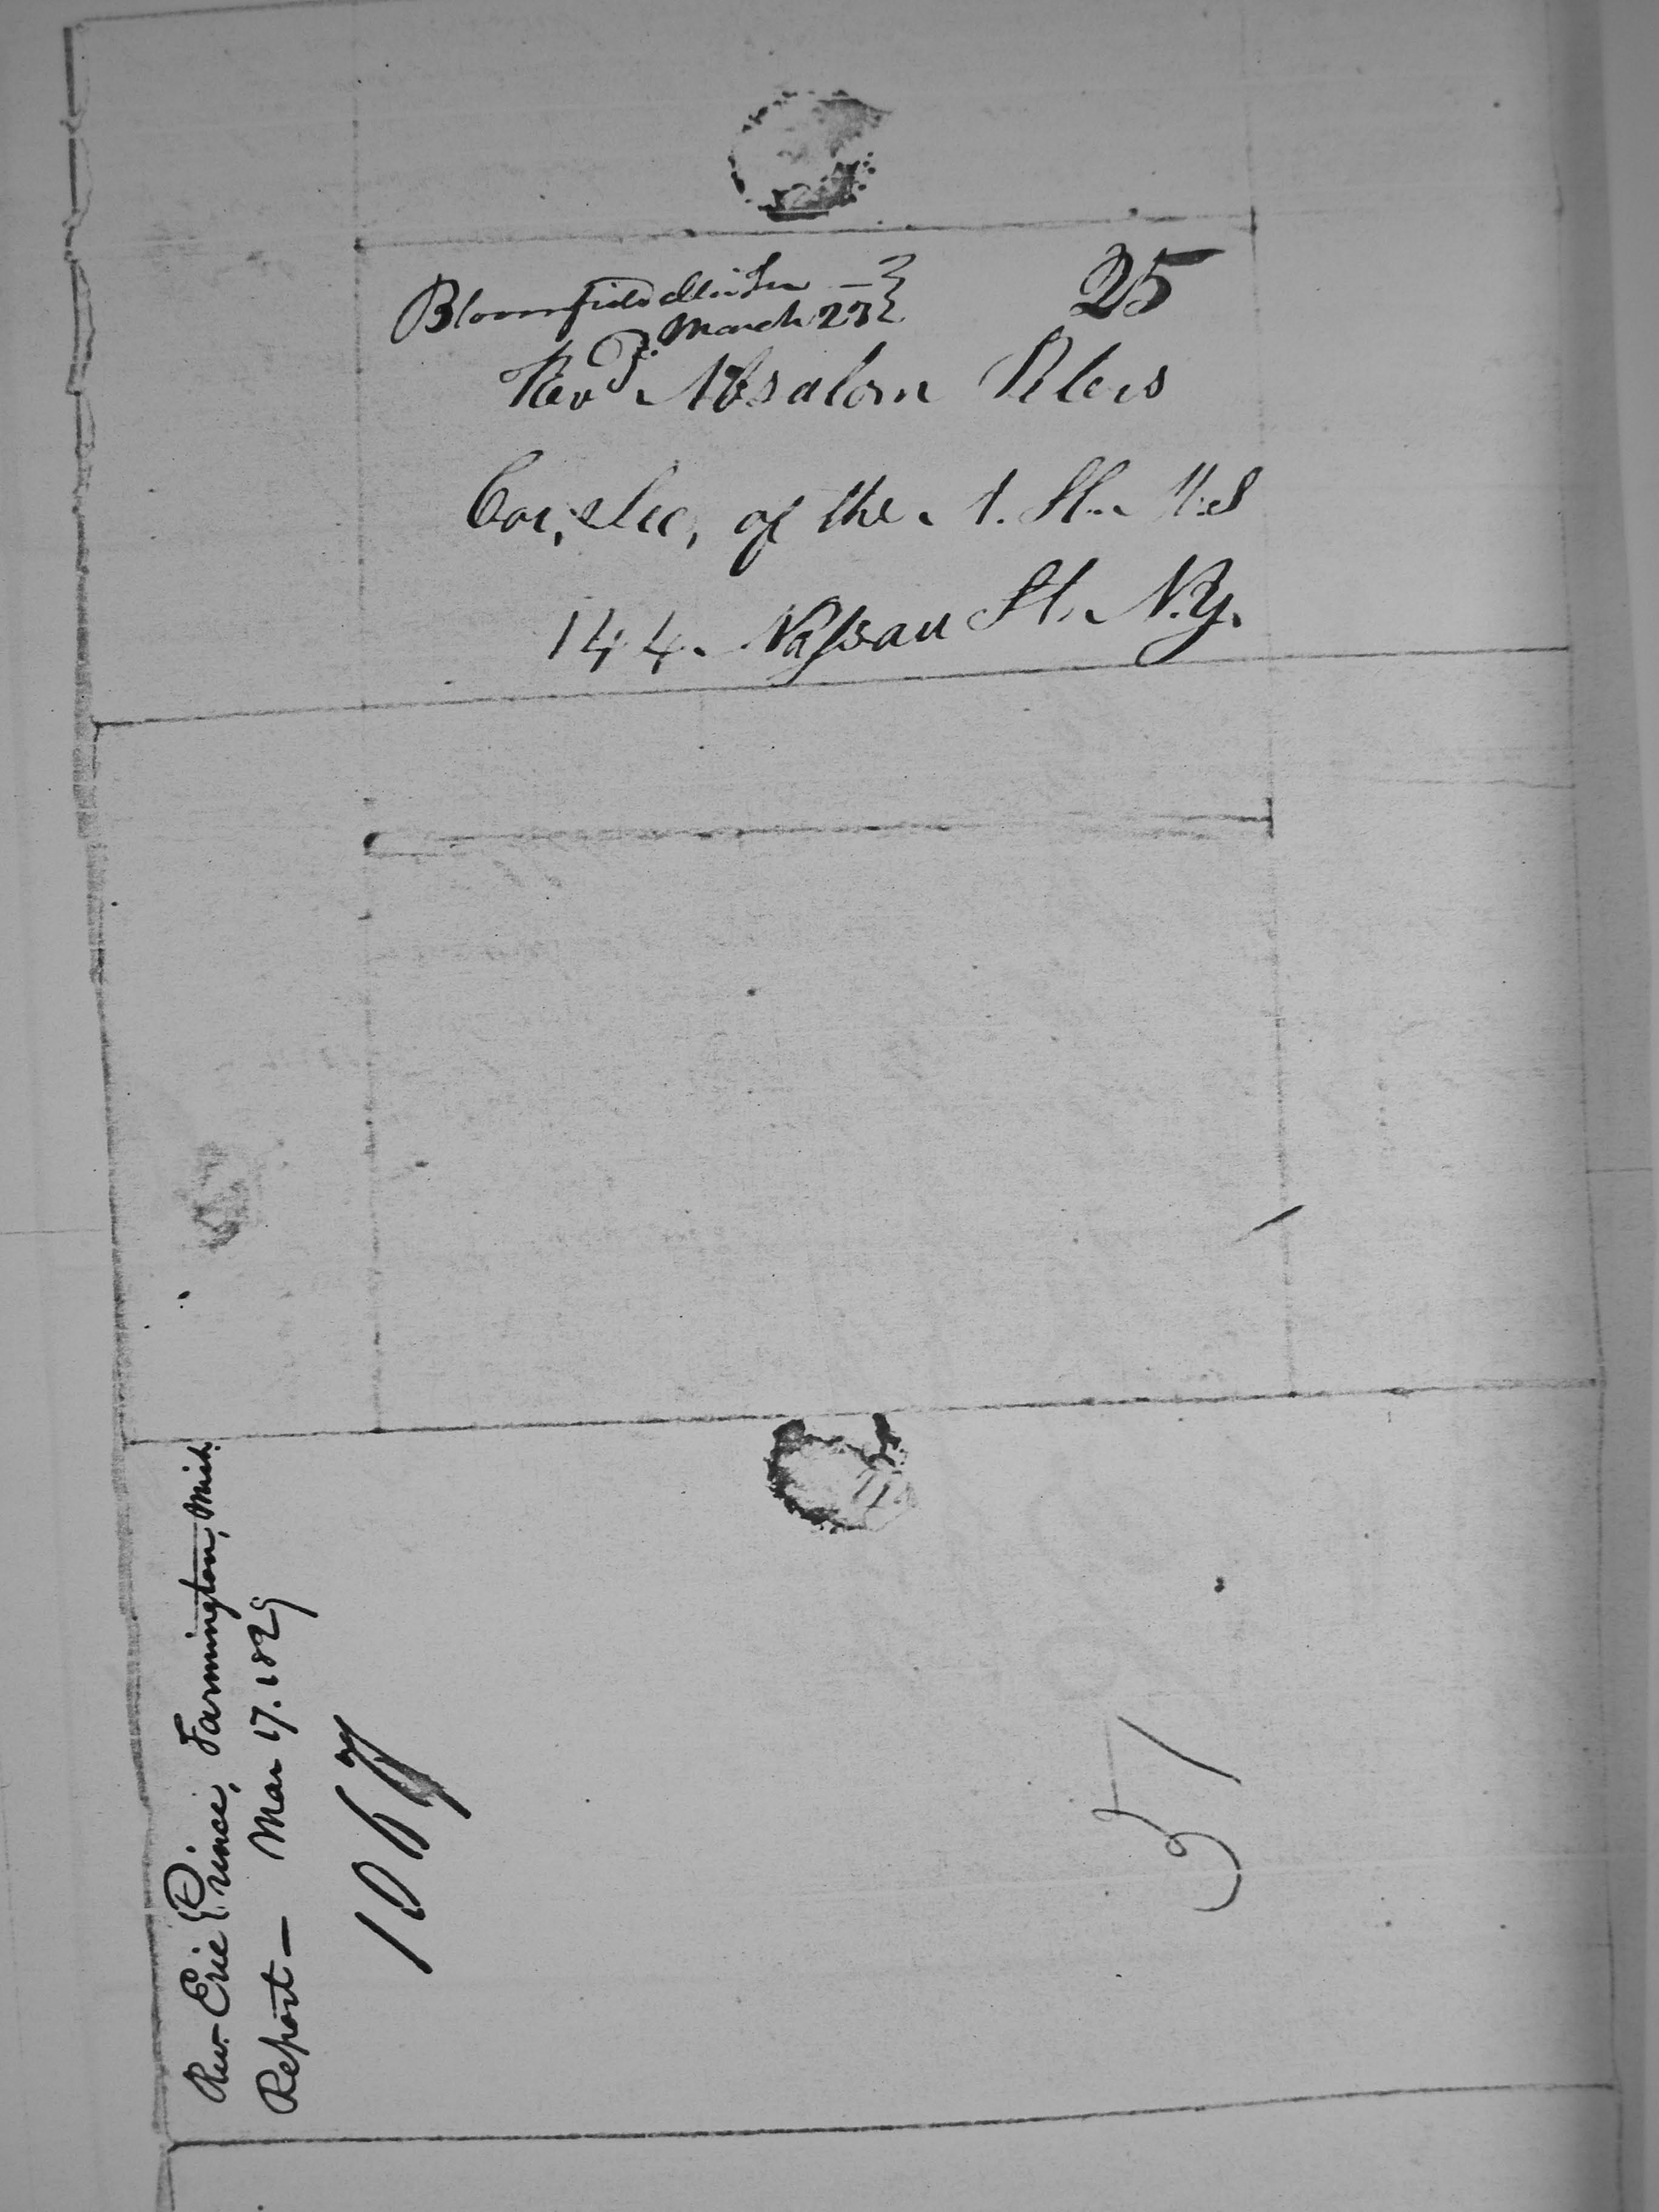 Bloomfield Mich Ter
March 23
25
Revd. Absalom Peters
Cor, Sec, of the A. H. M. S
144. Nassau St. N.Y.
Rev. Erie Prince, Farmington, Mich.
Report — Mar 17. 1829
1067
37